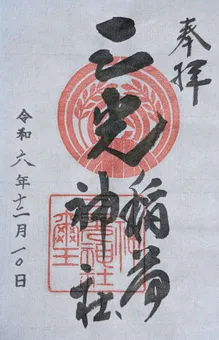 奉拝
三光稲荷
神社
令和六年十二月一〇日